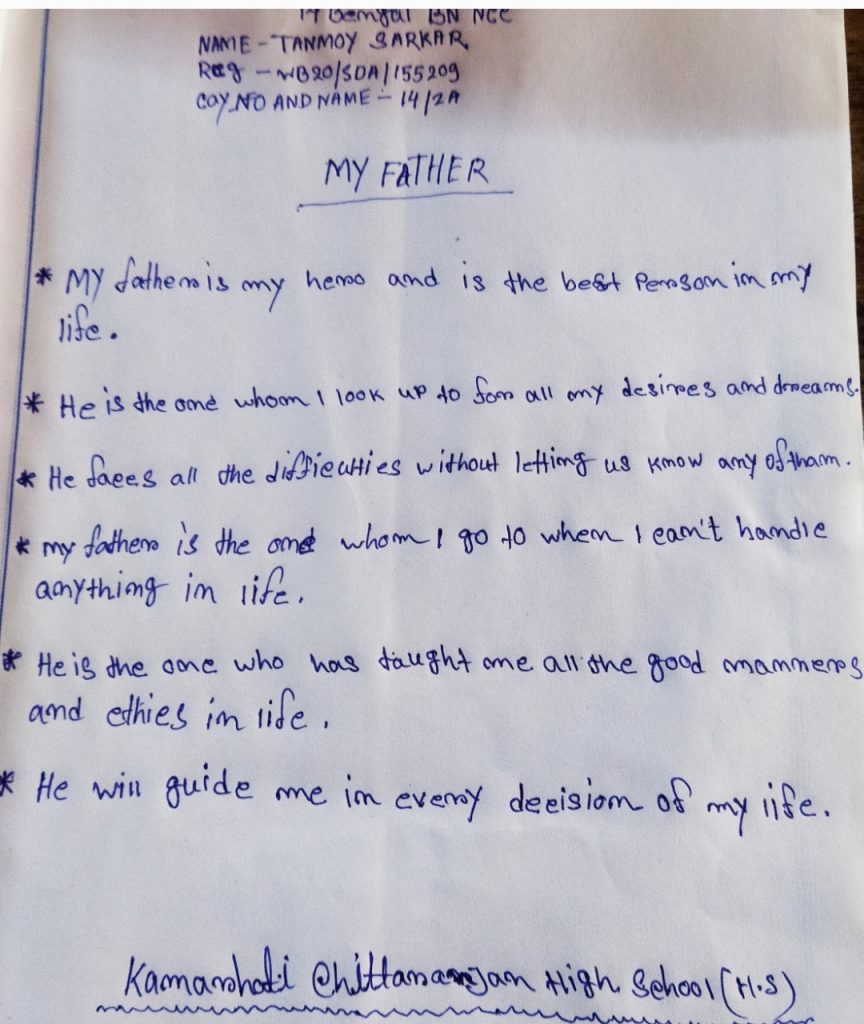 17 Bengal BN NCC
NAME - TANMOY SARKAR
Reg - WB20/SDA/155209
COY NO AND NAME - 14/2A
MY FATHER
* MY father is my hero and is the best Person in my
life.
* He is the one whom I look up to for all my desires and dreams.
* He faces all the difficulties without letting us know any of tham.
* my father is the one whom I go to when I can't handle
anything in life.
* He is the one who has taught me all the good manners
and ethics in life.
* He will guide me in every decision of my life.
Kamarhati Chittaranjan High School (H.S)